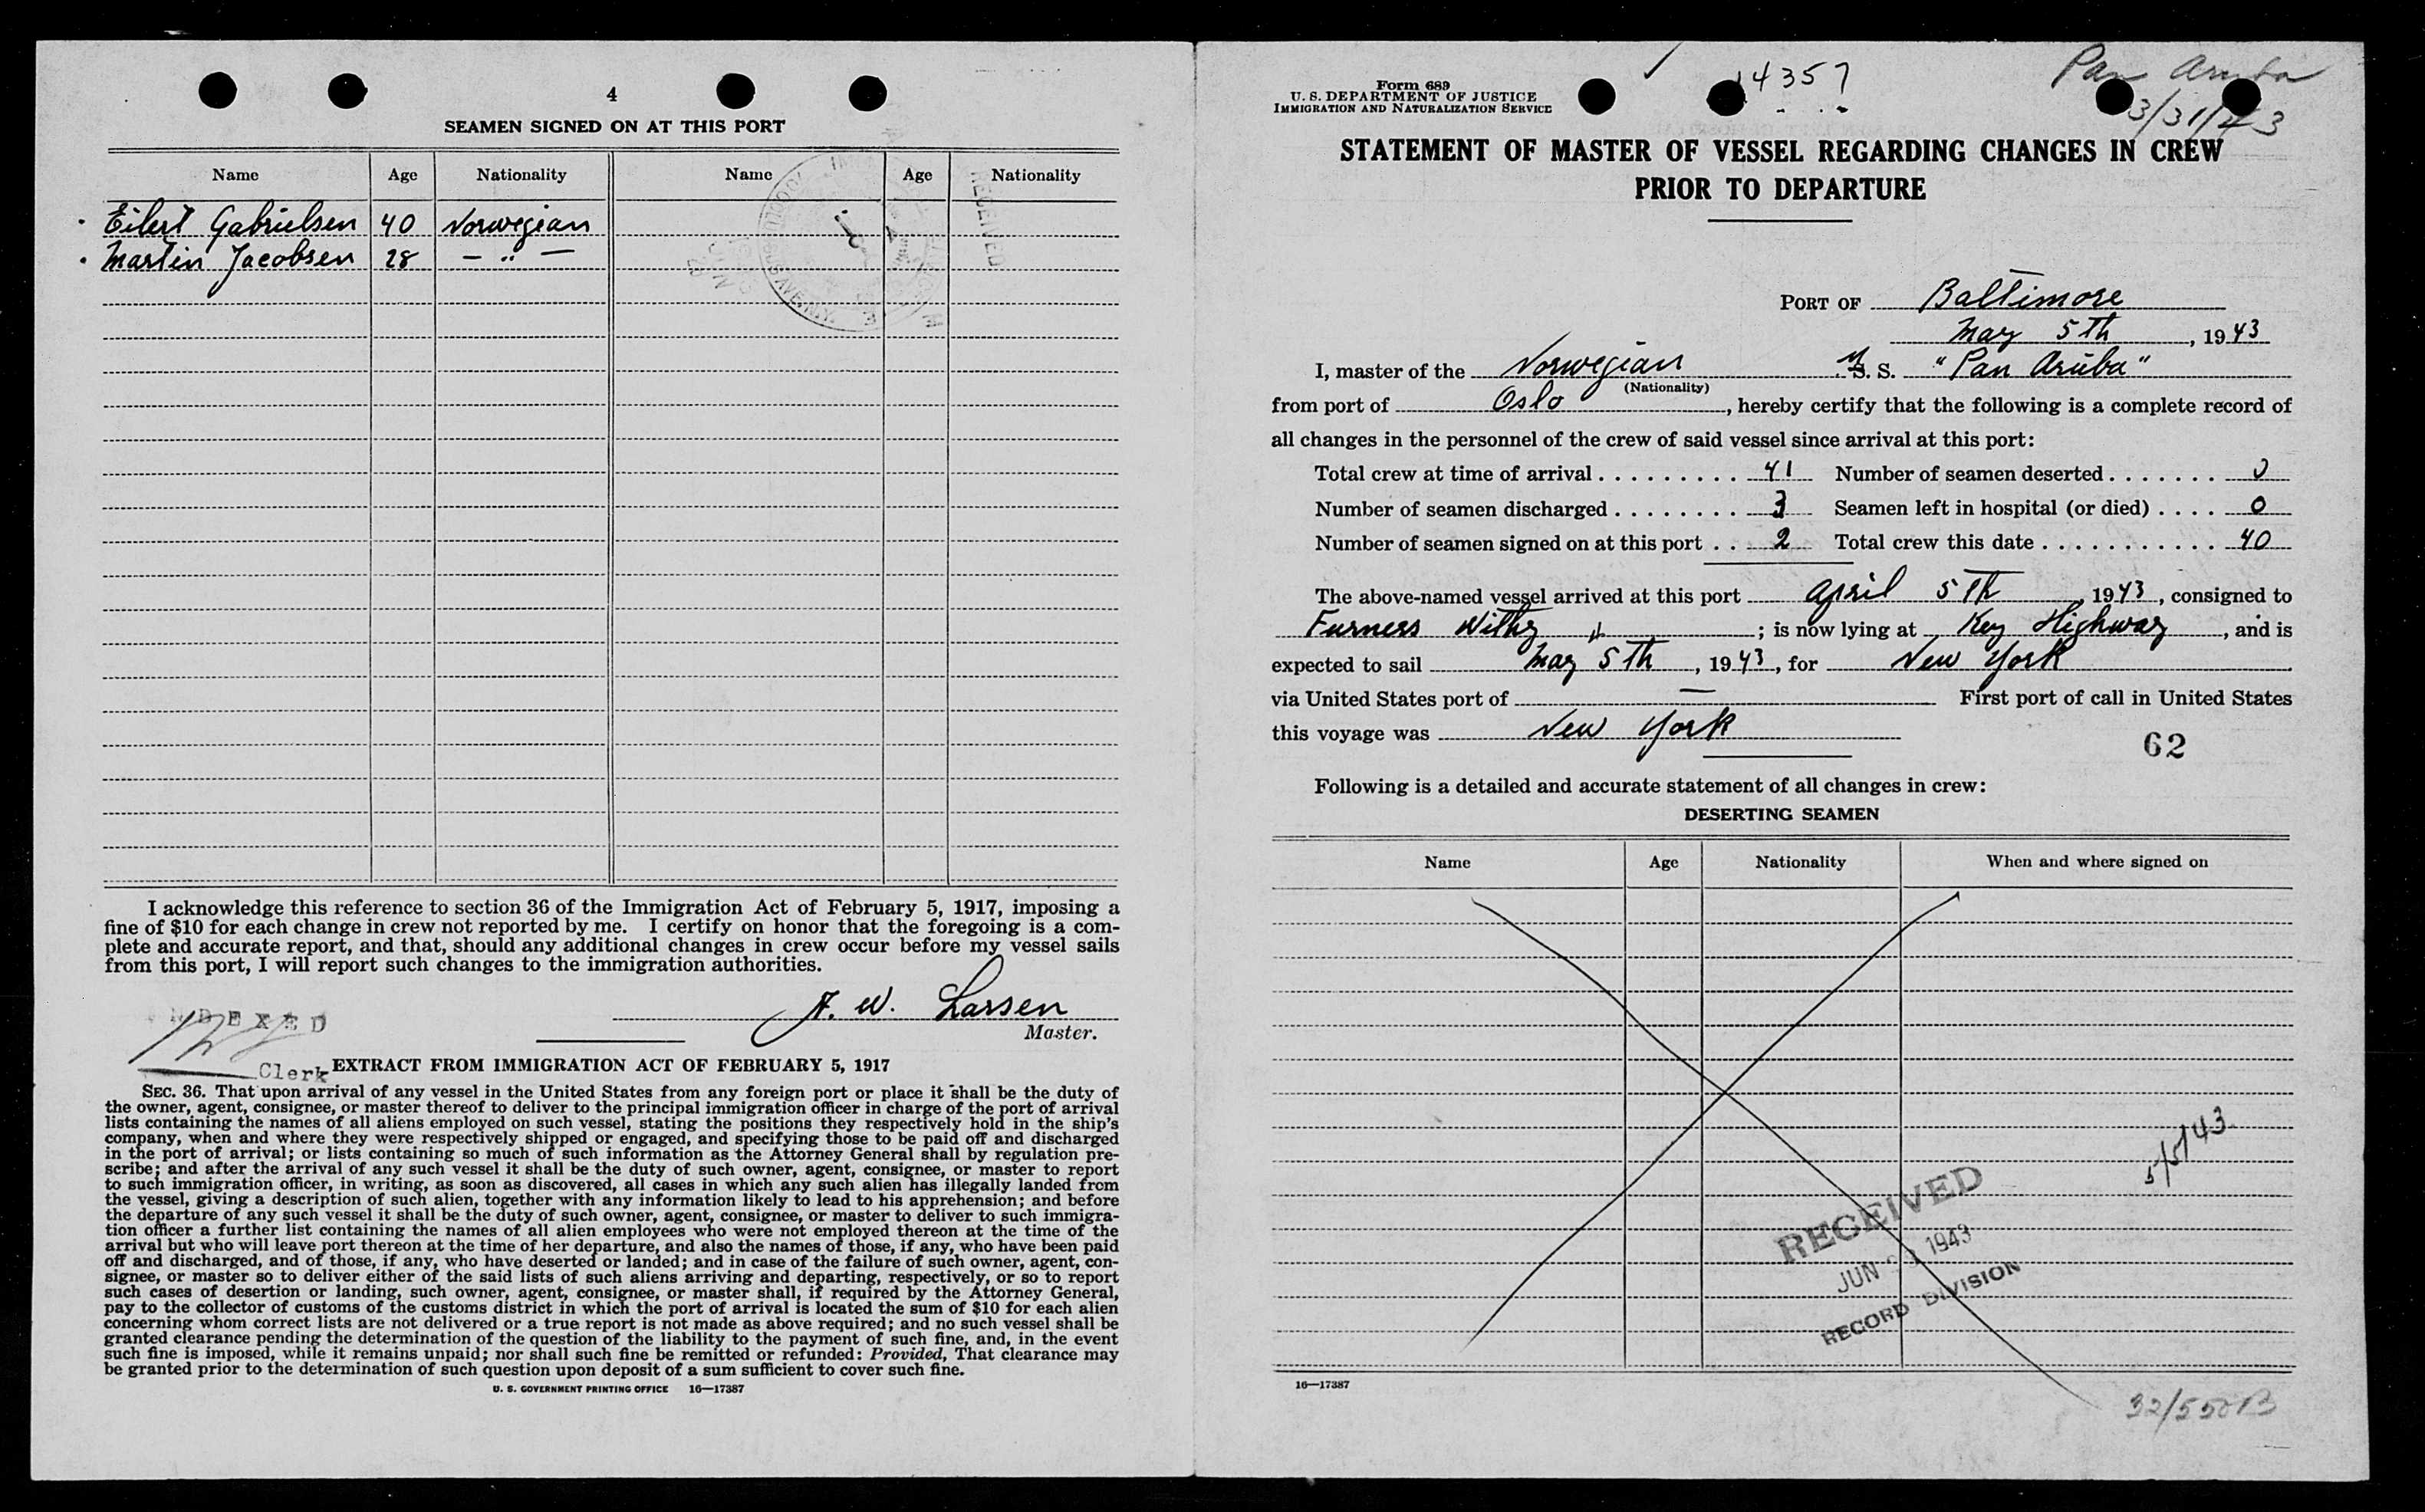 4
SEAMEN SIGNED ON AT THIS PORT
Name Age Nationality Name Age Nationality
Eilert Gabrielsen 40 Norwegian
Martin Jacobsen 28 — " —
RECEIVED
I acknowledge this reference to section 36 of the Immigration Act of February 5, 1917, imposing a
fine of $10 for each change in crew not reported by me. I certify on honor that the foregoing is a com-
plete and accurate report, and that, should any additional changes in crew occur before my vessel sails
from this port, I will report such changes to the immigration authorities.
A. W. Larsen
Master.
INDEXED
Clerk
EXTRACT FROM IMMIGRATION ACT OF FEBRUARY 5, 1917
SEC. 36. That upon arrival of any vessel in the United States from any foreign port or place it shall be the duty of
the owner, agent, consignee, or master thereof to deliver to the principal immigration officer in charge of the port of arrival
lists containing the names of all aliens employed on such vessel, stating the positions they respectively hold in the ship's
company, when and where they were respectively shipped or engaged, and specifying those to be paid off and discharged
in the port of arrival; or lists containing so much of such information as the Attorney General shall by regulation pre-
scribe; and after the arrival of any such vessel it shall be the duty of such owner, agent, consignee, or master to report
to such immigration officer, in writing, as soon as discovered, all cases in which any such alien has illegally landed from
the vessel, giving a description of such alien, together with any information likely to lead to his apprehension; and before
the departure of any such vessel it shall be the duty of such owner, agent, consignee, or master to deliver to such immigra-
tion officer a further list containing the names of all alien employees who were not employed thereon at the time of the
arrival but who will leave port thereon at the time of her departure, and also the names of those, if any, who have been paid
off and discharged, and of those, if any, who have deserted or landed; and in case of the failure of such owner, agent, con-
signee, or master so to deliver either of the said lists of such aliens arriving and departing, respectively, or so to report
such cases of desertion or landing, such owner, agent, consignee, or master shall, if required by the Attorney General,
pay to the collector of customs of the customs district in which the port of arrival is located the sum of $10 for each alien
concerning whom correct lists are not delivered or a true report is not made as above required; and no such vessel shall be
granted clearance pending the determination of the question of the liability to the payment of such fine, and, in the event
such fine is imposed, while it remains unpaid; nor shall such fine be remitted or refunded: Provided, That clearance may
be granted prior to the determination of such question upon deposit of a sum sufficient to cover such fine.
U. S. GOVERNMENT PRINTING OFFICE 16—17387
Form 689
U. S. DEPARTMENT OF JUSTICE
IMMIGRATION AND NATURALIZATION SERVICE
14357
Pan Aruba
3/31/43
STATEMENT OF MASTER OF VESSEL REGARDING CHANGES IN CREW
PRIOR TO DEPARTURE
PORT OF Baltimore
May 5th, 1943
I, master of the Norwegian M. S. "Pan Aruba"
(Nationality)
from port of Oslo, hereby certify that the following is a complete record of
all changes in the personnel of the crew of said vessel since arrival at this port:
Total crew at time of arrival 41 Number of seamen deserted 0
Number of seamen discharged 3 Seamen left in hospital (or died) 0
Number of seamen signed on at this port 2 Total crew this date 40
The above-named vessel arrived at this port April 5th, 1943, consigned to
Furness Withy; is now lying at Key Highway, and is
expected to sail May 5th, 1943, for New York
via United States port of — First port of call in United States
this voyage was New York
62
Following is a detailed and accurate statement of all changes in crew:
DESERTING SEAMEN
Name Age Nationality When and where signed on
5/5/43
RECEIVED
JUN 1943
RECORD DIVISION
16—17387